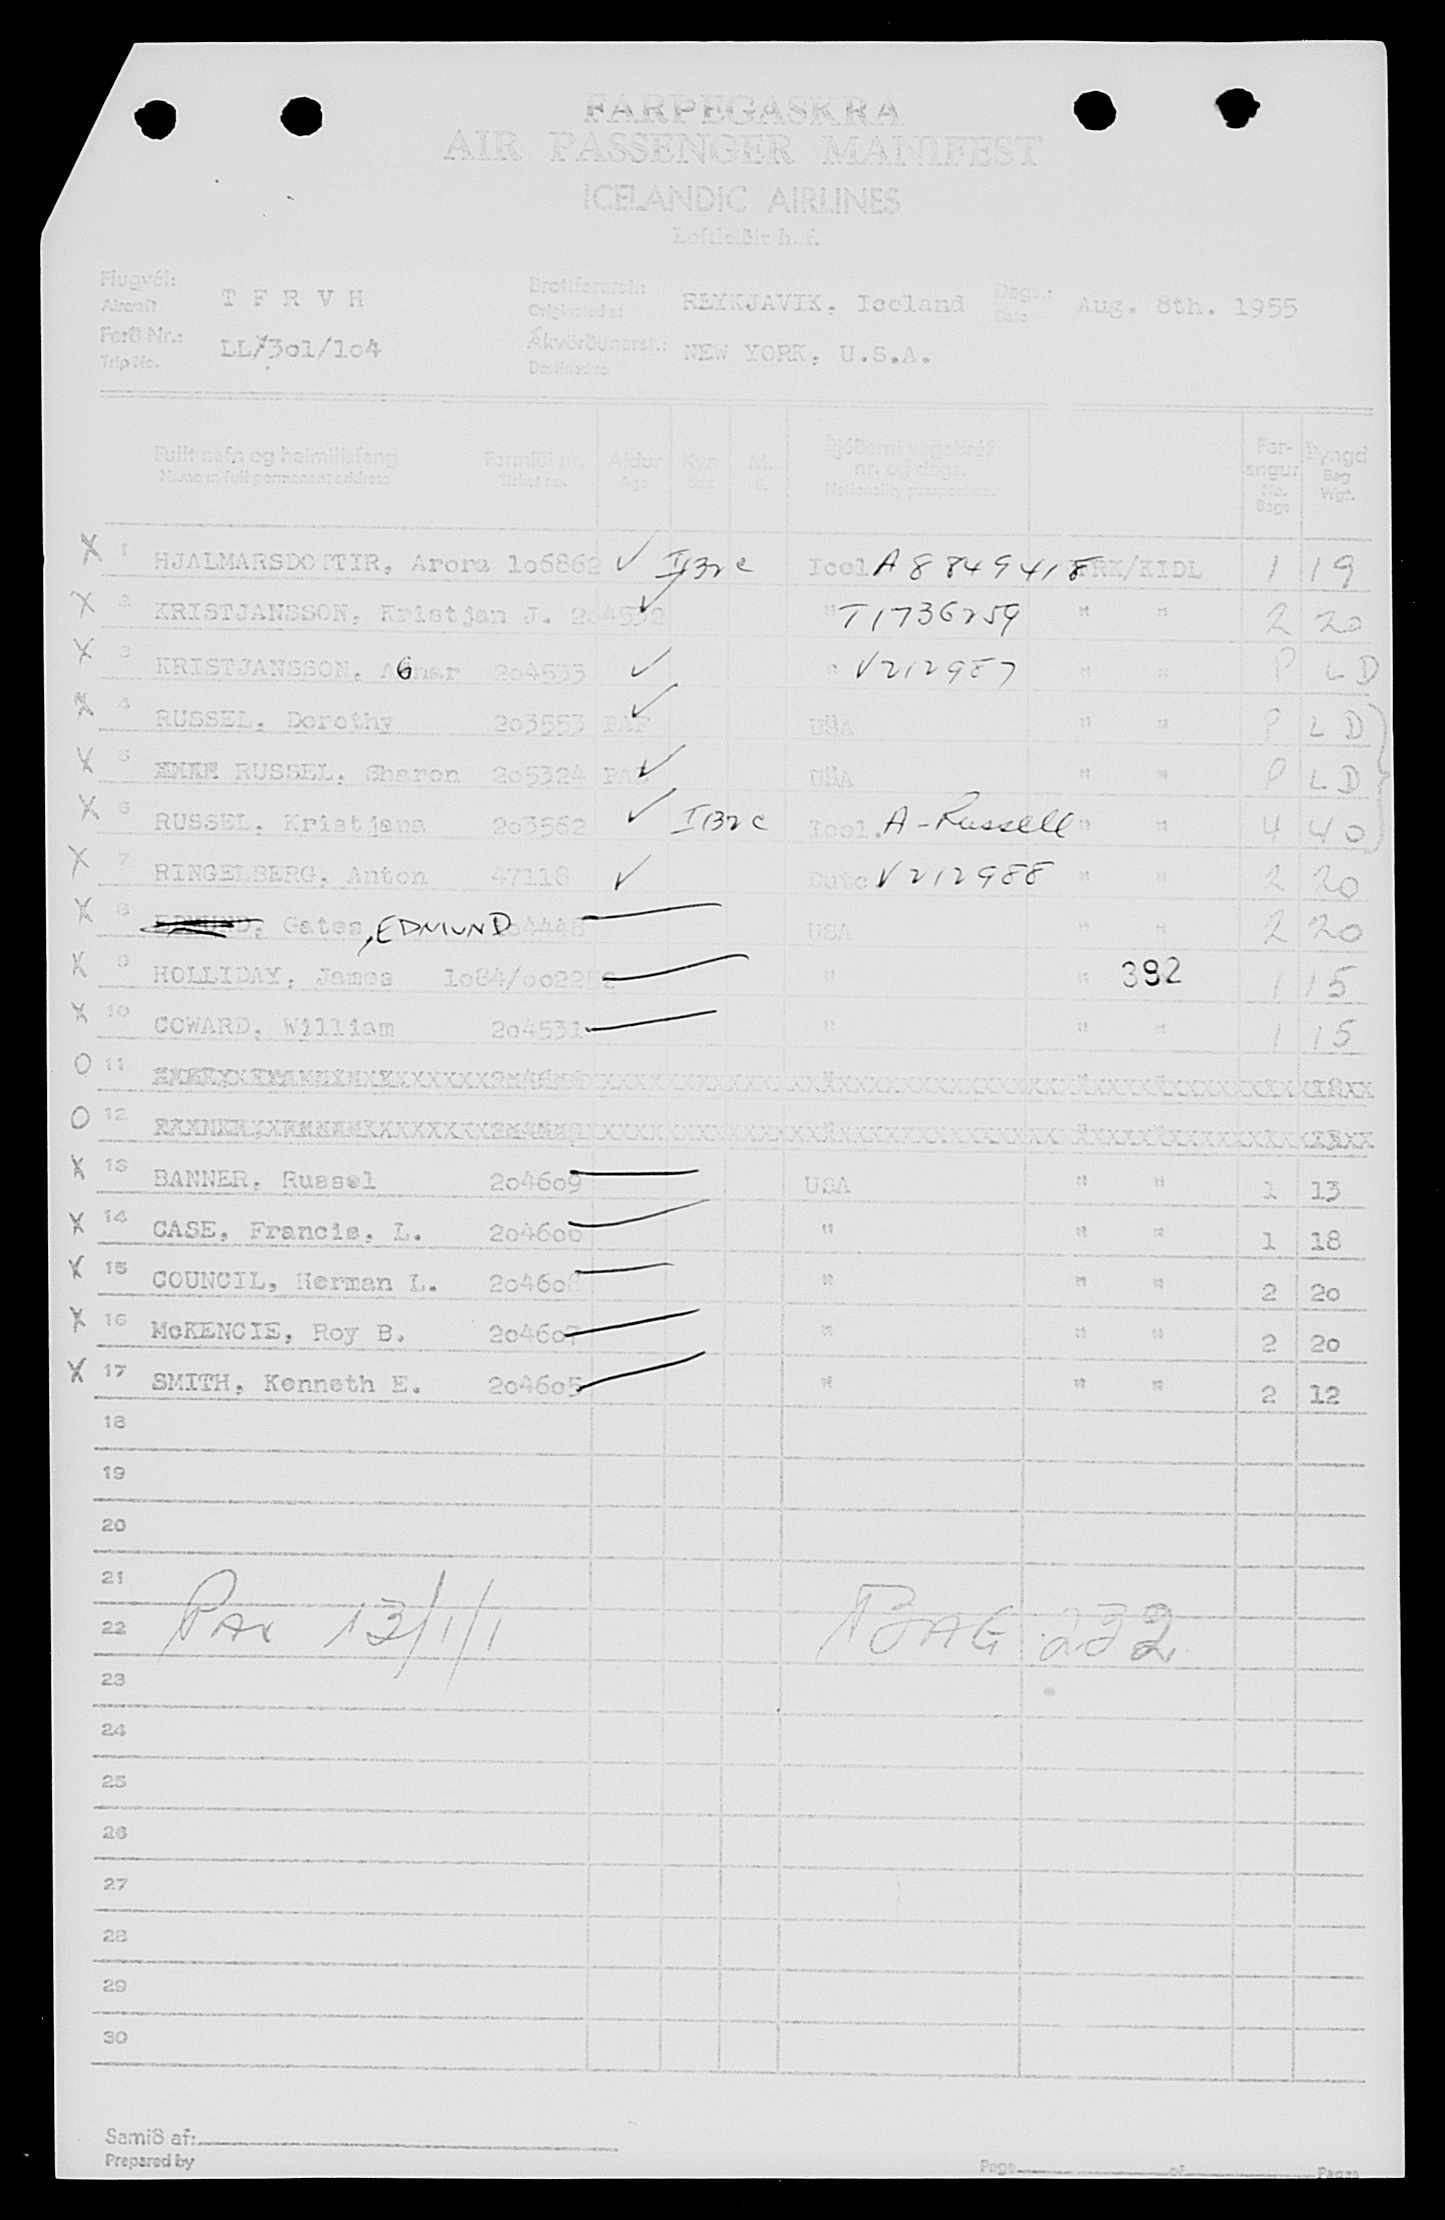 FARÞEGASKRÁ
AIR PASSENGER MANIFEST
ICELANDIC AIRLINES
Loftleiðir h.f.
Flugvél: T F R V H Brottfararst.: REYKJAVIK, Iceland Dags.: Aug. 8th. 1955
Aircraft Originated at Date
Ferð Nr.: LL/301/104 Ákvörðunarst.: NEW YORK, U.S.A.
Trip No. Destined to
Fullt nafn og heimilisfang Farmiði nr. Aldur Kyn M. Þjóðerni vegabréf Far- Þyngd
Name in full permanent address Ticket no. Age Sex nr. og dags. angur Bag
Nationality passport no. No. Bags Wgt.
X 1 HJALMARSDOTTIR, Arora 106862 ✓ Icel A8849418 FRK/KIDL 1 19
X 2 KRISTJANSSON, Kristjan J. 204532 ✓ " T1736259 " " 2 20
X 3 KRISTJANSSON, A6nar 204533 ✓ " V212987 " " P LD
X 4 RUSSEL, Dorothy 203553 ✓ USA " " P LD
X 5 RUSSEL, Sharon 205324 ✓ USA " " P LD
X 6 RUSSEL, Kristjana 203562 ✓ Icel. A-Russell " " 4 40
X 7 RINGELBERG, Anton 47118 ✓ Dutc V212988 " " 2 20
X 8 EDMUND, Gates, EDMUND 204448 USA " " 2 20
X 9 HOLLIDAY, James 1084/002252 " " 392 1 15
X 10 COWARD, William 204531 " " " 1 15
O 11
O 12
X 13 BANNER, Russel 204609 USA " " 1 13
X 14 CASE, Francis, L. 204606 " " " 1 18
X 15 COUNCIL, Herman L. 204608 " " " 2 20
X 16 McKENCIE, Roy B. 204607 " " " 2 20
X 17 SMITH, Kenneth E. 204605 " " " 2 12
18
19
20
21
22 PAX 13/1/1 BAG 232
23
24
25
26
27
28
29
30
Samið af:
Prepared by Page of Pages